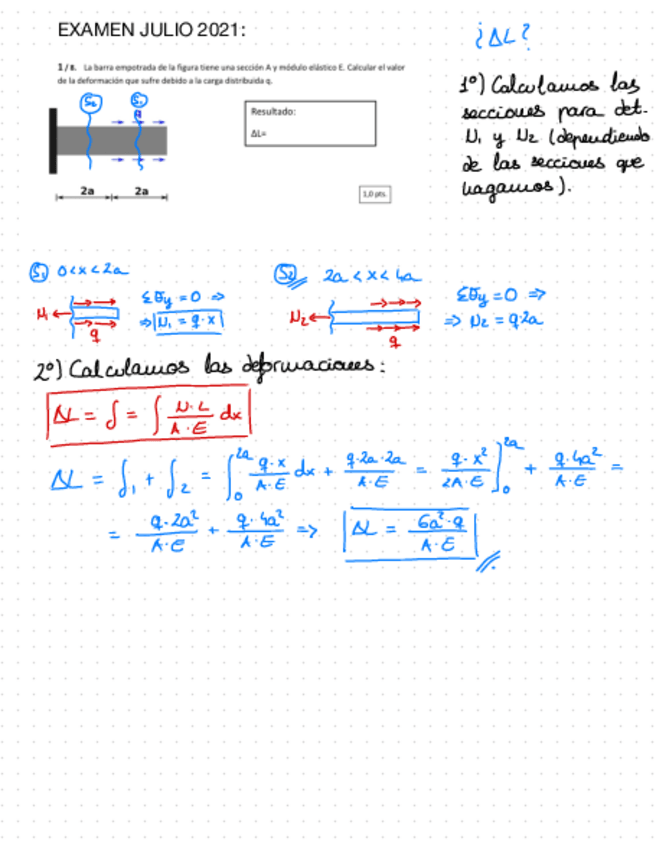 EXAMEN JULIO 2021:
¿ΔL?
1/8. La barra empotrada de la figura tiene una sección A y módulo elástico E. Calcular el valor
de la deformación que sufre debido a la carga distribuida q.
S₂ S₁
Resultado:
ΔL=
2a 2a
1,0 pts.
1º) Calculamos las
secciones para det.
N₁ y N₂ (dependiendo
de las secciones que
hagamos).
S₁ 0<x<2a
N₁ q
ΣFy=0 ⇒
⇒ N₁ = q·x
S₂ 2a<x<4a
N₂ q
ΣFy=0 ⇒
⇒ N₂ = q·2a
2º) Calculamos las deformaciones:
ΔL = ∫ = ∫ N·L/A·E dx
ΔL = ∫₁ + ∫₂ = ∫₀^2a q·x/A·E dx + q·2a·2a/A·E = q·x²/2A·E ]₀^2a + q·4a²/A·E =
= q·2a²/A·E + q·4a²/A·E => ΔL = 6a²·q/A·E